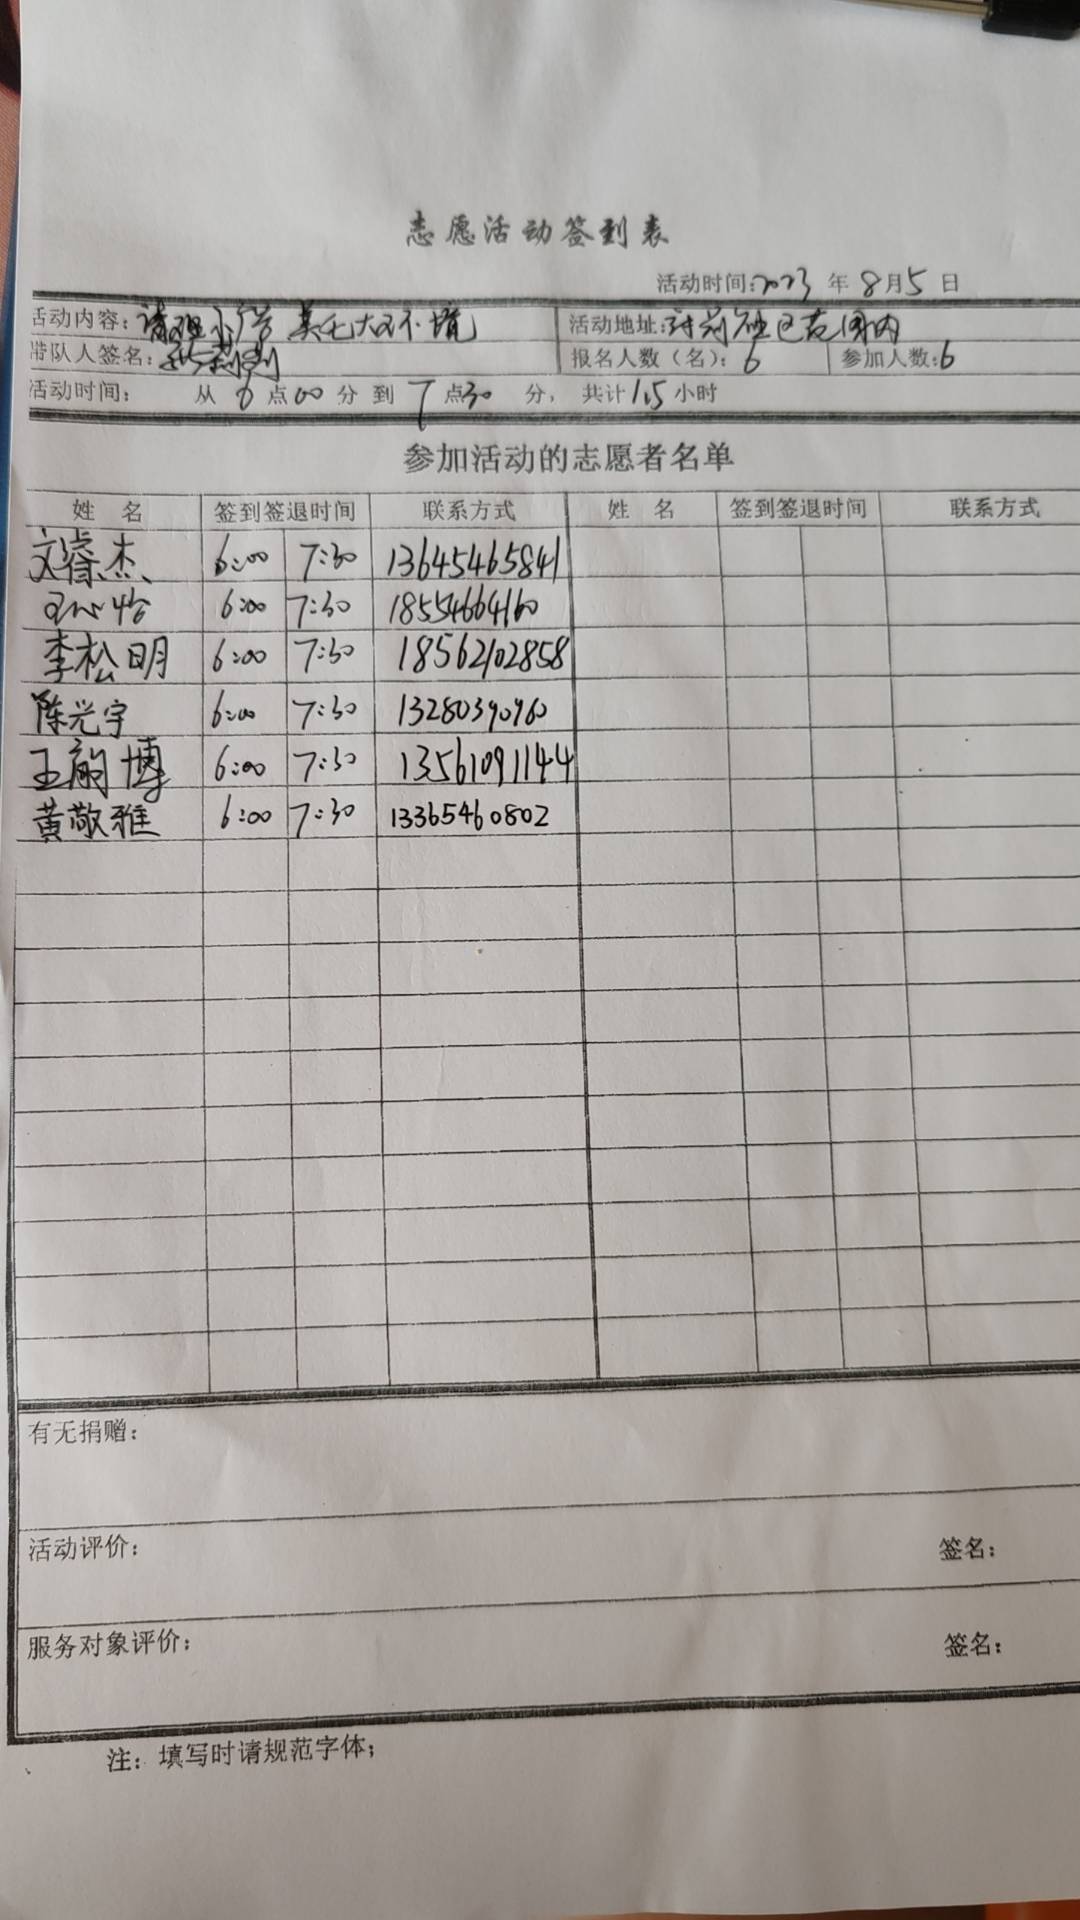 志愿活动签到表
活动时间:2023 年 8月5 日
活动内容:清理 美化 环境 活动地址: 园内
带队人签名: 报名人数(名): 6 参加人数:6
活动时间: 从 6 点 00 分 到 7 点30 分, 共计1.5 小时
参加活动的志愿者名单
姓 名 签到签退时间 联系方式 姓 名 签到签退时间 联系方式
文睿杰 6:00 7:30 13645465841
王心怡 6:00 7:30 18554664160
李松明 6:00 7:30 18562102858
陈光宇 6:00 7:30 13280390960
王韵博 6:00 7:30 13561091144
黄敬雅 6:00 7:30 13365460802
有无捐赠:
活动评价: 签名:
服务对象评价: 签名:
注: 填写时请规范字体;